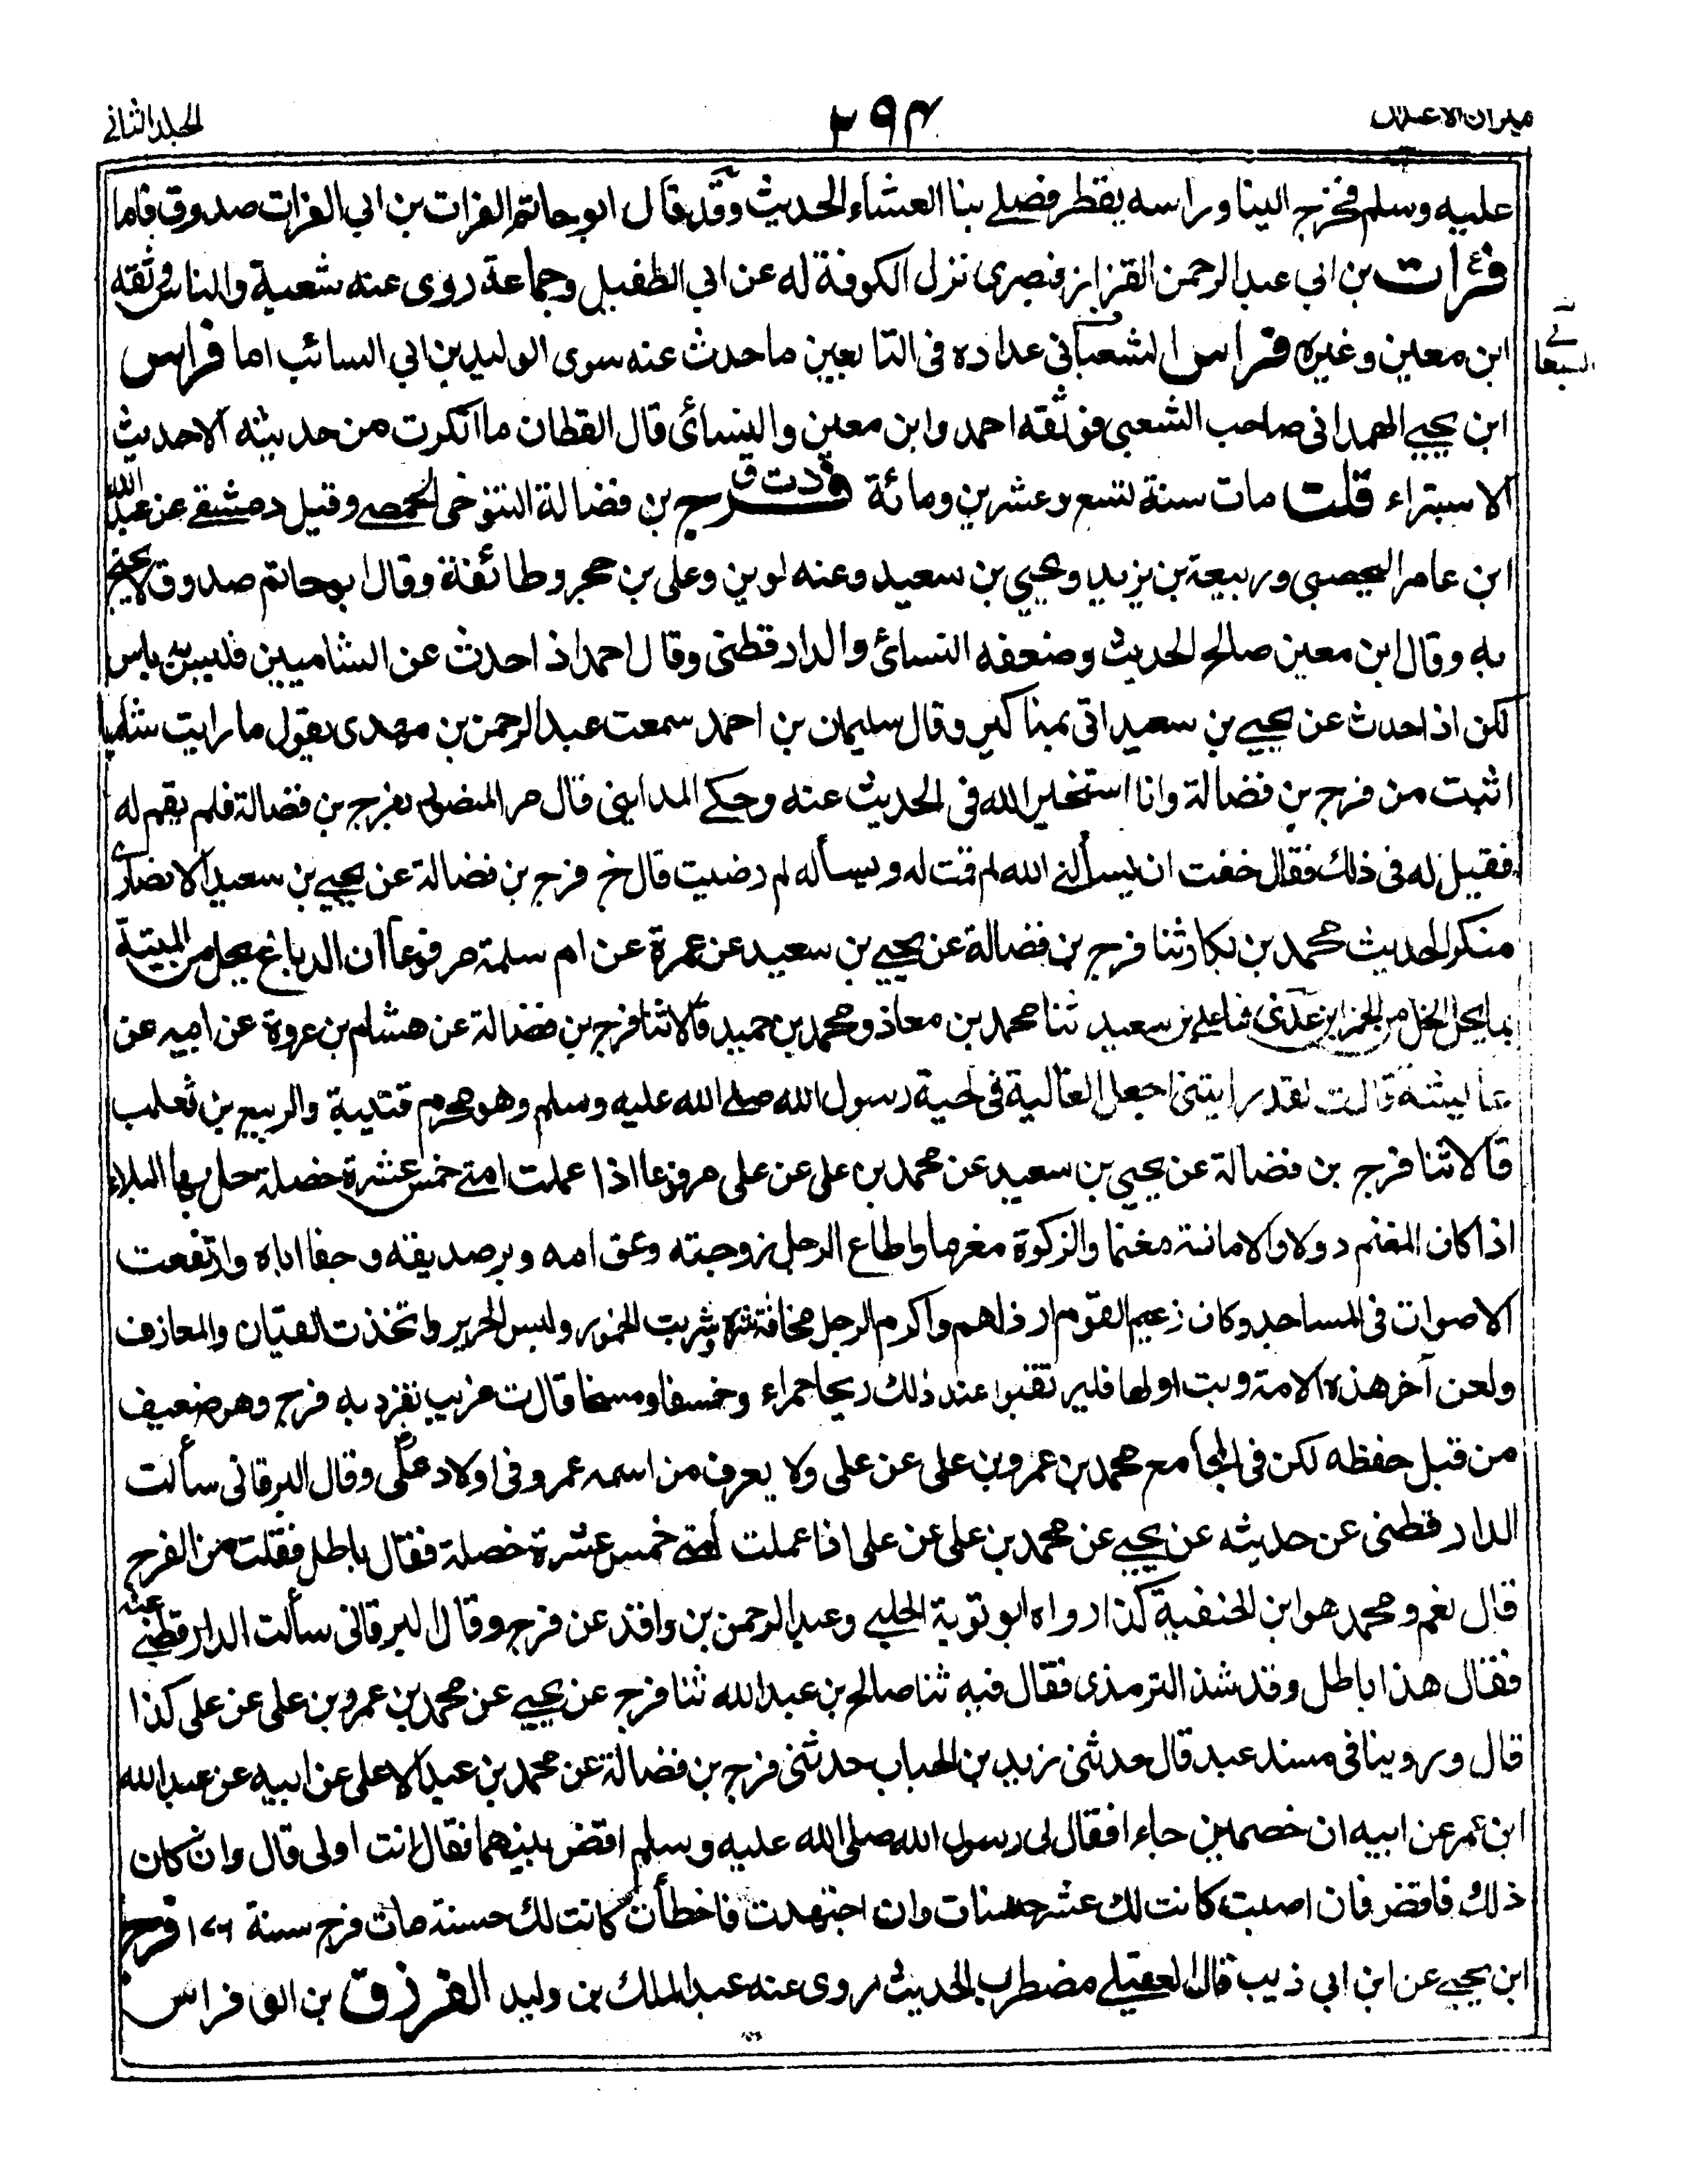 ميزان الاعتدال
٢٩٤
المجلد الثاني
عليه وسلم فخرج الينا وراسه يقطر فصلے بنا العشاء الحديث وقد قال ابو حاتم الفرات بن ابي الفرات صدوق فاما
فرات بن ابي عبد الرحمن القزاز فبصرى نزل الكوفة له عن ابي الطفيل وجماعة روى عنه شعبة والناس وثقه
ابن معين وغيره فراس الشعباني عداده فى التابعين ما حدث عنه سوى الوليد بن ابي السائب اما فراس
ابن يحيے الهمدانى صاحب الشعبي فوثقه احمد وابن معين والنسائى قال القطان ما انكرت من حديثه الا حديث
الاستبراء قلت مات سنة تسع وعشرين ومائة فرج د ت ق بن فضالة التنوخى الحمصے وقيل دمشقے عن عبد الله
ابن عامر اليحصبي وربيعة بن يزيد ويحيي بن سعيد وعنه لوين وعلى بن حجر وطائفة وقال ابو حاتم صدوق لا يحتج
به وقال ابن معين صالح الحديث وضعفه النسائى والدارقطنى وقال احمد اذا حدث عن الشاميين فليس به باس
لكن اذا حدث عن يحيے بن سعيد اتى بمناكير وقال سليمان بن احمد سمعت عبد الرحمن بن مهدى يقول ما رايت شاميا
اثبت من فرج بن فضالة وانا استخير الله فى الحديث عنه وحكے المدايني قال مر المنصور بفرج بن فضالة فلم يقم له
فقيل له فى ذلك فقال خفت ان يسألنے الله لم قمت له ويسأله لم رضيت قال خ فرج بن فضالة عن يحيے بن سعيد الانصارى
منكر الحديث محمد بن بكار ثنا فرج بن فضالة عن يحيے بن سعيد عن عمرة عن ام سلمة مرفوعاً ان الدباغ يحل من الميتة
بما يحل الخل من الخمر ابن عدى ثنا علے بن سعيد ثنا محمد بن معاذ ومحمد بن حميد قالا ثنا فرج بن فضالة عن هشام بن عروة عن ابيه عن
عايشة قالت لقد رايتنى اجعل الغالية فى لحية رسول الله صلے الله عليه وسلم وهو محرم قتيبة والربيع بن ثعلب
قالا ثنا فرج بن فضالة عن يحيي بن سعيد عن محمد بن على عن على مرفوعا اذا عملت امتے خمس عشرة خصلة حل بها البلاء
اذا كان المغنم دولا والامانة مغنما والزكوة مغرما واطاع الرجل زوجته وعق امه وبر صديقه وجفا اباه وارتفعت
الاصوات فى المساجد وكان زعيم القوم ارذلهم واكرم الرجل مخافة شره وشربت الخمور ولبس الحرير واتخذت القيان والمعازف
ولعن آخر هذه الامة وبت اولها فليرتقبوا عند ذلك ريحا حمراء وخسفا ومسخا قال ت غريب تفرد به فرج وهو ضعيف
من قبل حفظه لكن فى الجامع محمد بن عمرو بن على عن على ولا يعرف من اسمه عمرو فى اولاد على وقال البرقانى سألت
الدارقطنى عن حديثه عن يحيے عن محمد بن على عن على اذا عملت امتے خمس عشرة خصلة فقال باطل فقلت من الفرج
قال نعم ومحمد هو ابن الحنفية كذا رواه ابو توبة الحلبے وعبد الرحمن بن واقد عن فرج وقال البرقانى سألت الدارقطنے عنه
فقال هذا باطل وقد شذ الترمذى فقال فيه ثنا صالح بن عبد الله ثنا فرج عن يحيے عن محمد بن عمرو بن على عن على كذا
قال وروينا فى مسند عبد قال حدثنى زيد بن الحباب حدثنى فرج بن فضالة عن محمد بن عبد الاعلى عن ابيه عن عبد الله
ابن عمر عن ابيه ان خصمين جاءا فقال لى رسول الله صلى الله عليه وسلم اقض بينهما فقال انت اولى قال وان كان
ذلك فاقض فان اصبت كانت لك عشر حسنات وان اجتهدت فاخطأت كانت لك حسنة مات فرج سنة ١٧٦ فرج
ابن يحيے عن ابن ابي ذيب قال العقيلے مضطرب الحديث روى عنه عبد الملك بن وليد الفرزق بن الق فراس